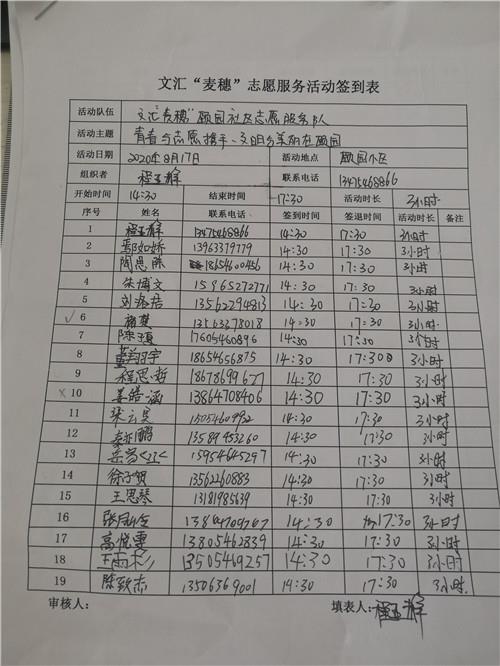 文汇“麦穗”志愿服务活动签到表
活动队伍 文汇“麦穗”颐园社区志愿服务队
活动主题 青春与志愿携手、文明与美丽在颐园
活动日期 2020年8月17日 活动地点 颐园小区
组织者 程玉锋 联系电话 13475468866
开始时间 14:30 结束时间 17:30 活动时长 3小时
序号 姓名 联系电话 签到时间 签退时间 活动时长 备注
1 程玉锋 13475468866 14:30 17:30 3小时
2 鄢如娇 13963379779 14:30 17:30 3小时
3 陶思陈 18654600456 14:30 17:30 3小时
4 朱博文 15865272771 14:30 17:30 3小时
5 刘 13562294813 14:30 17:30 3小时
√ 6 褚 13563278018 14:30 17:30 3小时
7 陈 17605460896 14:30 17:30 3小时
8 董 宇 18654656875 14:30 17:30 3小时
9 程思哲 18678699677 14:30 17:30 3小时
× 10 姜皓涵 13864708406 14:30 17:30 3小时
11 宋云昊 15054609932 14:30 17:30 3小时
12 秦 鹏 13589453260 14:30 17:30 3小时
13 15954645297 14:30 17:30 3小时
14 徐子贺 13562260883 14:30 17:30 3小时
15 王思琴 13181985639 14:30 17:30 3小时
16 张 14:30 17:30 3小时
17 高悦雯 13805462839 14:30 17:30 3小时
18 王雨杉 13505469257 14:30 17:30 3小时
19 陈致杰 13506369001 14:30 17:30 3小时
审核人: 填表人: 程玉锋